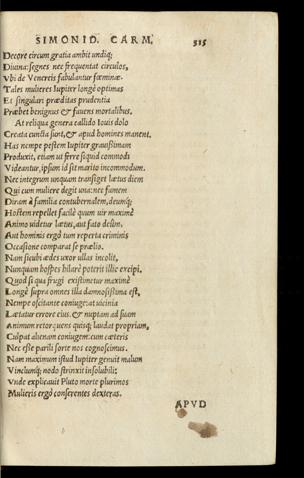 SIMONID. CARM. 315
Decore circum gratia ambit undiq;
Diuina: segnes nec frequentat circulos,
Vbi de Venereis fabulantur fœminæ.
Tales mulieres Iupiter longè optimas
Et singulari præditas prudentia
Præbet benignus & fauens mortalibus.
At reliqua genera callido Iouis dolo
Creata cuncta sunt, & apud homines manent.
Has nempe pestem Iupiter grauissimam
Produxit, etiam ut ferre siquid commodi
Videantur, ipsum id sit marito incommodum.
Nec integrum unquam transiget lætus diem
Qui cum muliere degit una: nec famem
Diram à familia contubernalem, deumq;
Hostem repellet facilè quum uir maximè
Animo uidetur lætus, aut fato deûm,
Aut hominis ergò tum reperta criminis
Occasione comparat se prælio.
Nam sicubi ædes uxor ullas incolit,
Nunquam hospes hilarè poterit illic excipi.
Quod si qua frugi existimetur maximè
Longè supra omnes illa damnosissima est,
Nempe oscitante coniuge: at uicinia
Lætatur errore eius, & nuptam ad suam
Animum retorquens quisq; laudat propriam,
Culpat alienam coniugem: cum cæteris
Nec esse parili sorte nos cognoscimus.
Nam maximum istud Iupiter genuit malum
Vinclumq; nodo strinxit insolubili:
Vnde explicauit Pluto morte plurimos
Mulieris ergò conserentes dexteras.
APVD